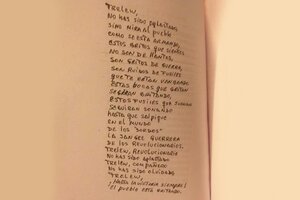 TRELEW,
NO HAS SIDO APLASTADO
SINO MIRA AL PUEBLO
COMO SE ESTÁ ARMANDO,
ESTOS GRITOS QUE SIENTES
NO SON DE LLANTOS,
SON GRITOS DE GUERRA,
SON RUIDOS DE FUSILES
QUE TE ESTÁN VENGANDO
ESTAS BOCAS QUE GRITAN
SEGUIRÁN GRITANDO,
ESTOS FUSILES QUE SUENAN
SEGUIRÁN SONANDO
HASTA QUE SALPIQUE
EN EL MUNDO
DE LOS "SORDOS"
LA SANGRE GUERRERA
DE LOS REVOLUCIONARIOS.
TRELEW, REVOLUCIONARIO
NO HAS SIDO APLASTADO
TRELEW, COMPAÑERO
NO HAS SIDO OLVIDADO
TRELEW,
¡Hasta la victoria siempre!
El pueblo está